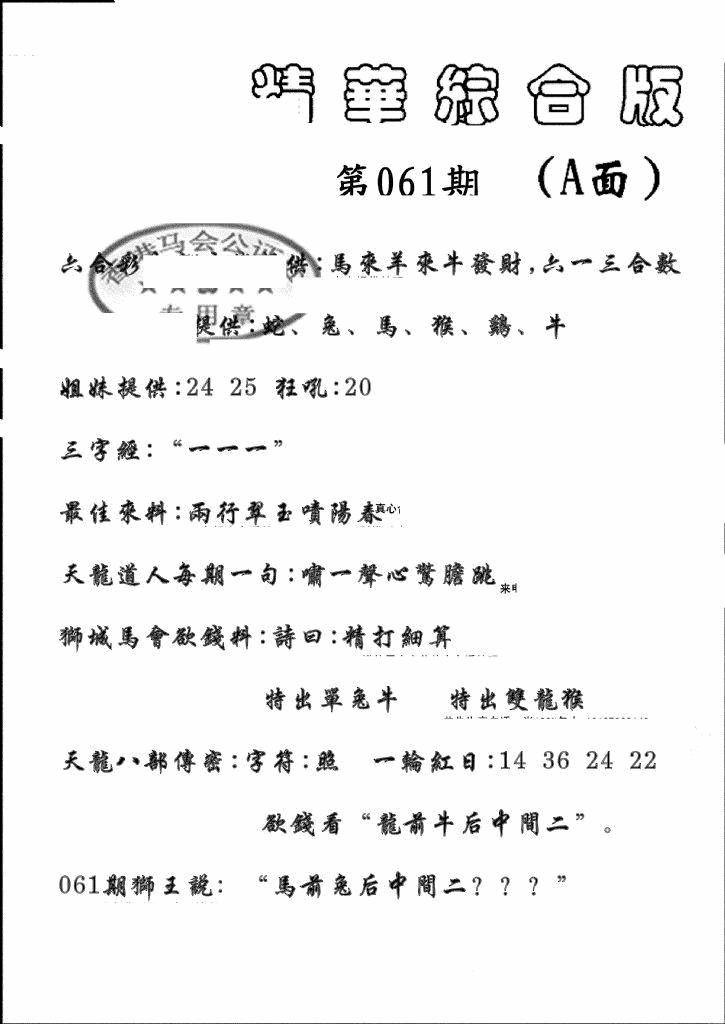 精華綜合版
第061期 (A面)
六合彩 供:馬來羊來牛發財,六一三合數
提供:蛇、兔、馬、猴、鷄、牛
专用章
姐妹提供:24 25 狂吼:20
三字經:“一一一”
最佳來料:兩行翠玉噴陽春
真心
天龍道人每期一句:嘯一聲心驚膽跳
来
獅城馬會欲錢料:詩曰:精打細算
特出單兔牛 特出雙龍猴
天龍八部傳密:字符:照 一輪紅日:14 36 24 22
欲錢看“龍前牛后中間二”。
061期獅王說: “馬前兔后中間二???”